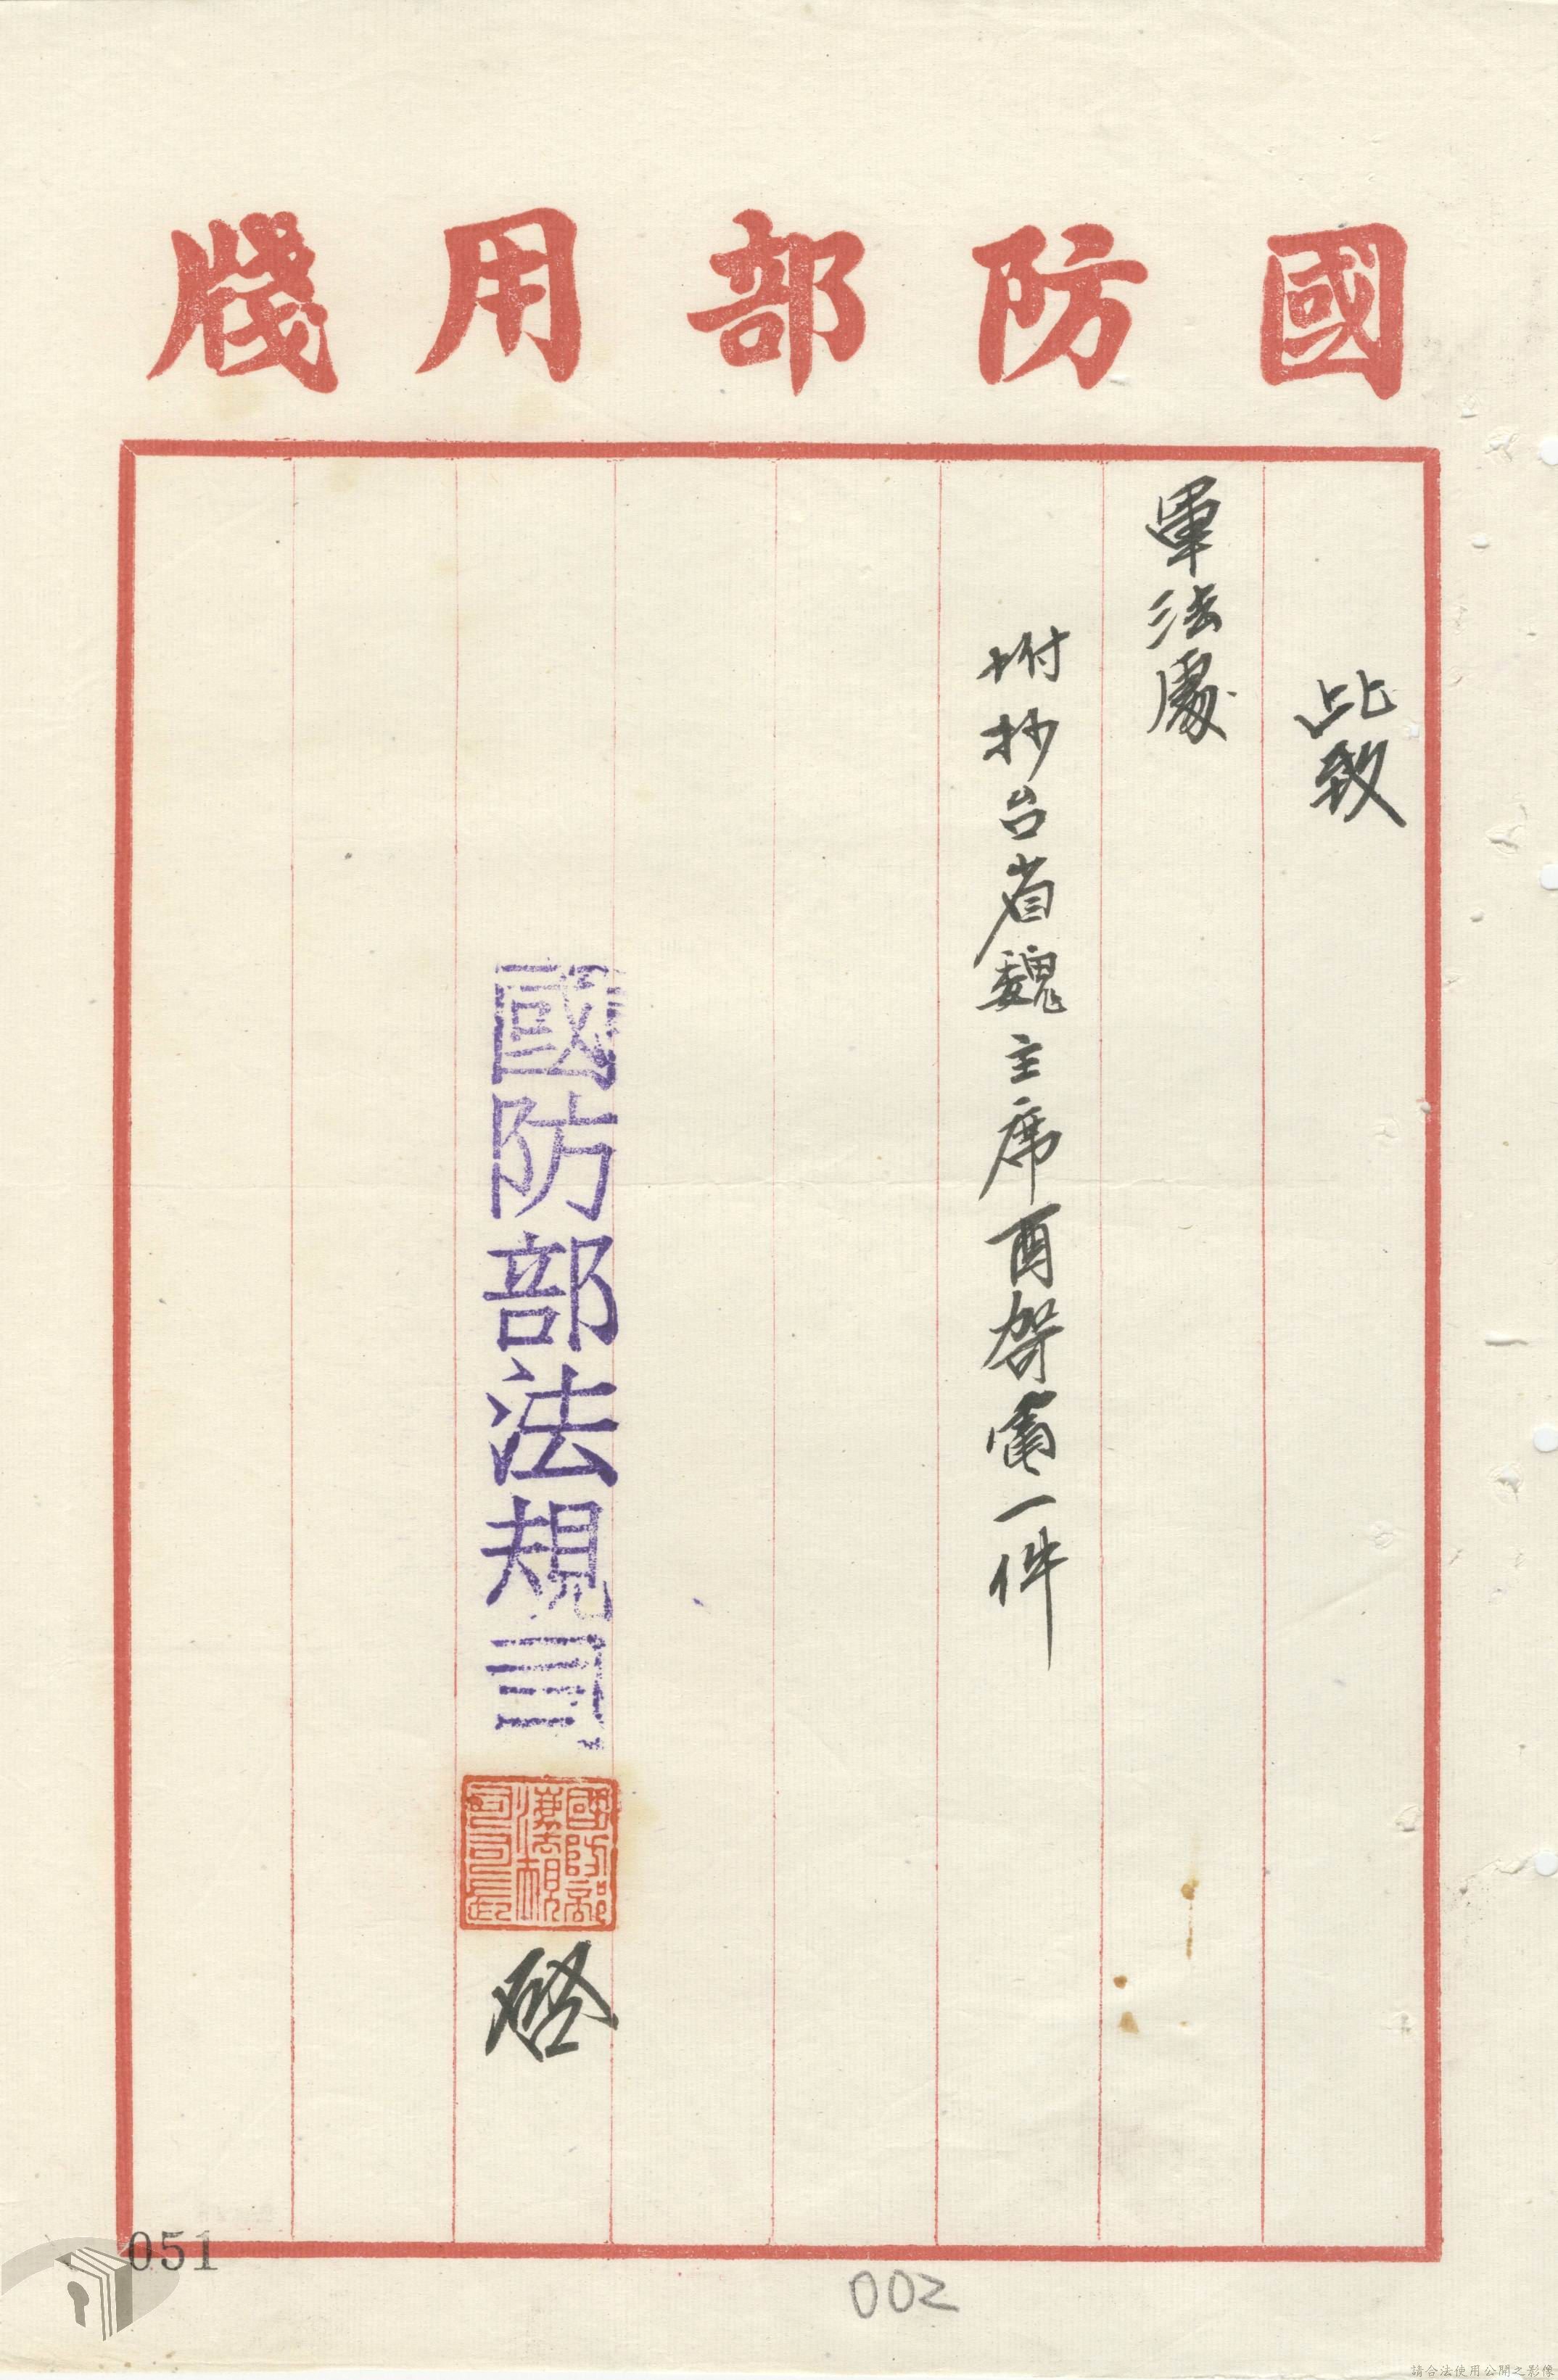 國防部用牋
此致
軍法處
坿抄台省魏主席酉哿電一件
國防部法規司
國防部法規司
啓
051
002
請合法使用公開之影像